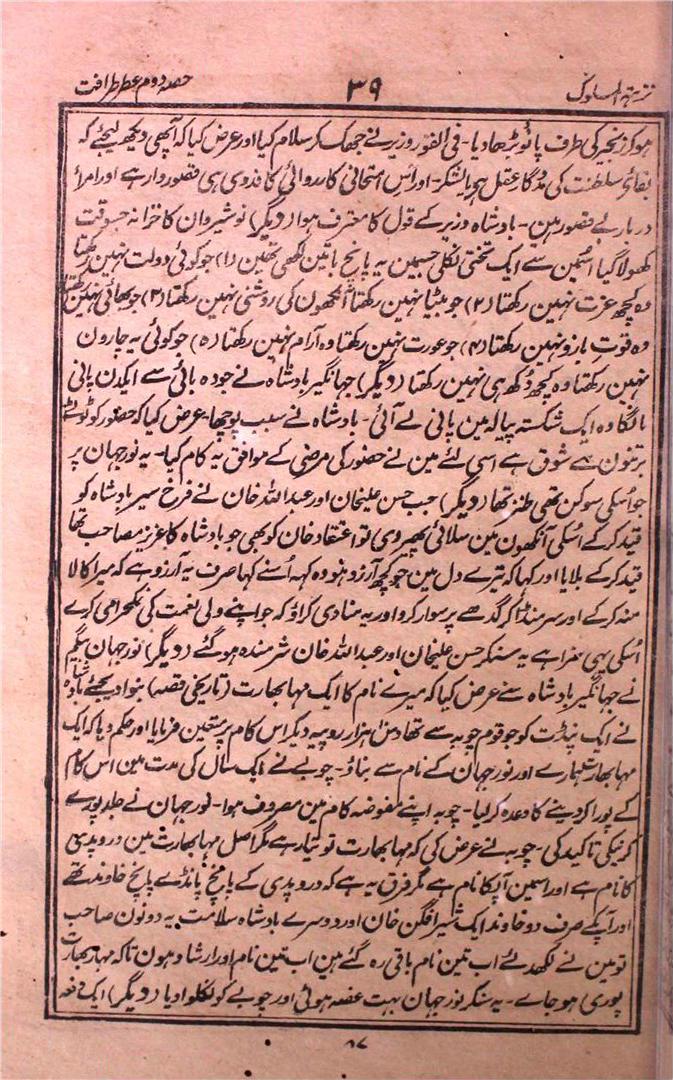 نزہۃ السلوک ۳۹ حصہ دوم عطر ظرافت
ہوکر زنجیر کی طرف پانؤ بڑھا دیا۔ فی الفور وزیر نے جھک کر سلام کیا اور عرض کیا کہ آپہی دیکھ لیجئے کہ
بقائے سلطنت کی مددگار عقل ہی یا لشکر۔ اور اس امتحانی کارروائی کا فدوی ہی قصوروار ہے اور امرائے
دربار بے قصور ہین۔ بادشاہ وزیر کے قول کا معترف ہوا (دیگر) نوشیروان کا خزانہ جسوقت
کھولا گیا اُسمین سے ایک تختی نکلی جسمین یہ پانچ باتین لکھی تھین (۱) جو کوئی دولت نہین رکھتا
وہ کچھ عزت نہین رکھتا (۲) جو بیٹا نہین رکھتا آنکھون کی روشنی نہین رکھتا (۳) جو بھائی نہین رکھتا
وہ قوتِ بازو نہین رکھتا (۴) جو عورت نہین رکھتا وہ آرام نہین رکھتا (۵) جو کوئی یہ چارون
نہین رکھتا وہ کچھ دُکھ ہی نہین رکھتا (دیگر) جہانگیر بادشاہ نے جودہ بائی سے ایکدن پانی
مانگا وہ ایک شکستہ پیالہ مین پانی لے آئی۔ بادشاہ نے سبب پوچھا۔ عرض کیا کہ حضور کو ٹوٹے
برتنون سے شوق ہے اسی لئے مین نے حضور کی مرضی کے موافق یہ کام کیا۔ یہ نورجہان پر
جو اُسکی سوکن تھی طنز تھا (دیگر) جب حسن علیخان اور عبد اللہ خان نے فرخ سیر بادشاہ کو
قید کرکے اُسکی آنکھون مین سلائی پھیر دی تو اعتقاد خان کو بھی جو بادشاہ کا عزیز مصاحب تھا
قید کرکے بلایا اور کہا کہ تیرے دل مین جو کچھ آرزو ہو وہ کہہ اُسنے کہا صرف یہ آرزو ہے کہ میرا کالا
منہ کرکے اور سر منڈا کر گدھے پر سوار کرو اور یہ منادی کراؤ کہ جو اپنے ولی النعمت کی نمکحرامی کرے
اُسکی یہی سزا ہے یہ سنکر حسن علیخان اور عبد اللہ خان شرمندہ ہو گئے (دیگر) نورجہان بیگم
نے جہانگیر بادشاہ سے عرض کیا کہ میرے نام کا ایک مہابھارت (تاریخی قصہ) بنوا دیجئے بادشاہ
نے ایک پنڈت کو جو قوم چوبہ سے تھا دس ہزار روپیہ دیکر اس کام پر متعین فرمایا اور حکم دیا کہ ایک
مہابھارت ہمارے اور نورجہان کے نام سے بناؤ۔ چوبے نے ایک سال کی مدت مین اس کام
کے پورا کر دینے کا وعدہ کر لیا۔ چوبہ اپنے مفوضہ کام مین مصروف ہوا۔ نورجہان نے جلد پورے
کرنیکی تاکید کی۔ چوبہ نے عرض کی کہ مہابھارت تو تیار ہے مگر اصل مہابھارت مین دروپدی
کا نام ہے اور اسمین آپکا نام ہے مگر فرق یہ ہے کہ دروپدی کے پانچ پانڈے پانچ خاوند تھے
اور آپکے صرف دو خاوند ایک شیر افگن خان اور دوسرے بادشاہ سلامت۔ یہ دونون صاحب
تو مین نے لکھدئے اب تین نام باقی رہ گئے ہین اب تین نام اور ارشاد ہون تاکہ مہابھارت
پوری ہو جاے۔ یہ سنکر نورجہان بہت غصہ ہوئی اور چوبے کو نکلوا دیا (دیگر) ایک دفعہ